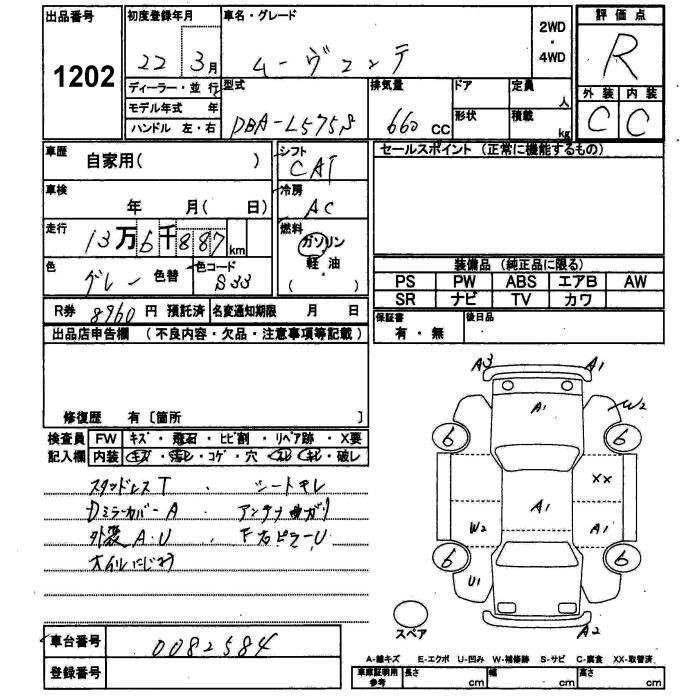 出品番号
1202
初度登録年月
22 3月
車名・グレード
ムーヴコンテ
2WD
・
4WD
評価点
R
外装 内装
C C
ディーラー・並行
モデル年式 年
ハンドル 左・右
型式
DBA-L575S
排気量
660 cc
ドア
形状
定員
人
積載
kg
車歴
自家用( )
シフト
CAT
車検
年 月( 日)
冷房
AC
走行
13万6千887 km
燃料
ガソリン
軽・油
( )
色
グレー 色替
色コード
S33
R券 8960円 預託済
名変通知期限 月 日
セールスポイント (正常に機能するもの)
装備品 (純正品に限る)
PS PW ABS エアB AW
SR ナビ TV カワ
保証書
有・無
後日品
出品店申告欄 (不良内容・欠品・注意事項等記載)
修復歴 有〔箇所 〕
検査員
記入欄
FW キズ・飛石・ヒビ割・リペア跡・X要
内装 キズ・汚れ・コゲ・穴・スレ・キレ・破レ
スタッドレスT シートキレ
DミラーカバーA アンテナ曲ガリ
外装A・U F右ピラーU
オイルにじみ
A3 A1
A1
W2
6 6
XX
A1
W2 A1
6 6
U1
A2
スペア
車台番号 0082584
登録番号
A-線キズ E-エクボ U-凹み W-補修跡 S-サビ C-腐食 XX-取替済
車庫証明用
参考
長さ cm
幅 cm
高さ cm